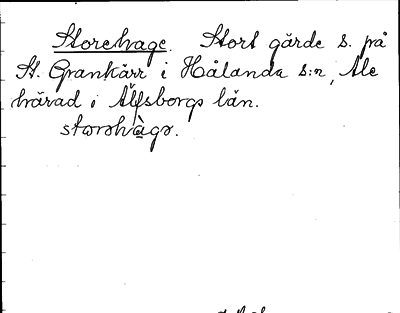 Storehage. Stort gärde s. på
St. Grankärr i Hålanda s:n, Ale
härad i Älfsborgs län.
storshàgə.